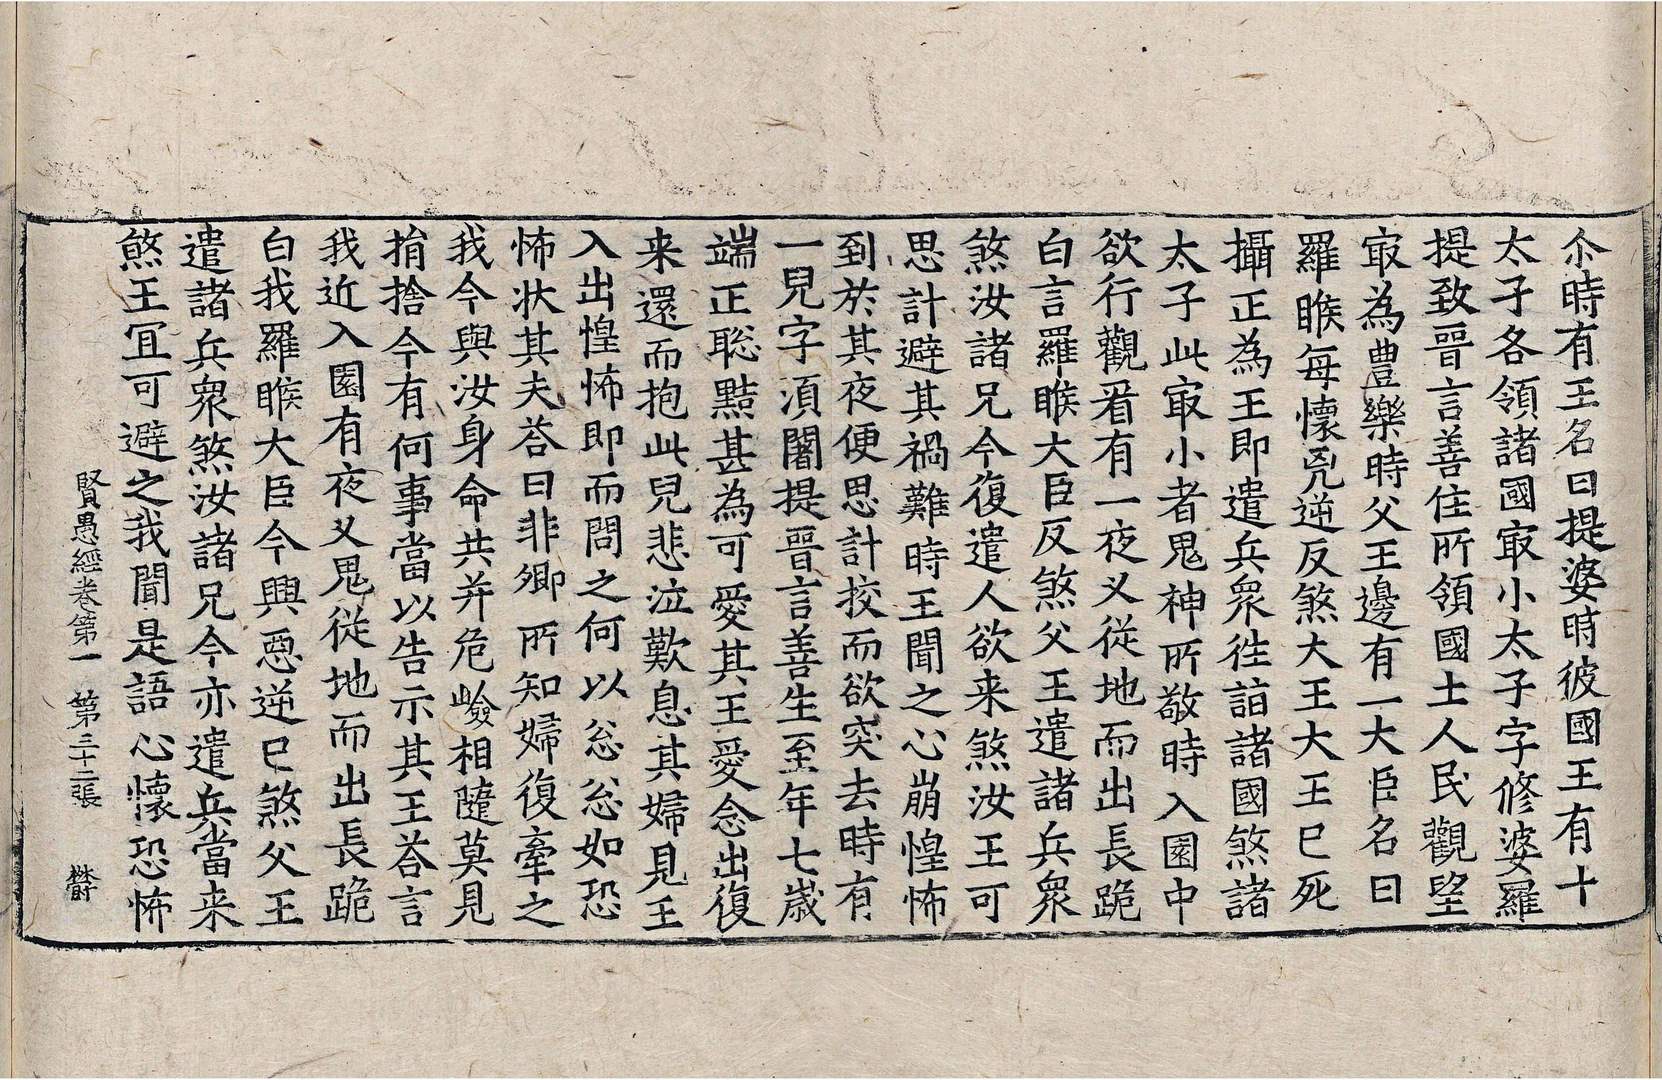 尒時有王名曰提婆時彼國王有十
太子各領諸國㝡小太子字修婆羅
提致晉言善住所領國土人民觀望
㝡為豊樂時父王邊有一大臣名曰
羅睺每懷兇逆反煞大王大王已死
攝正為王即遣兵衆往詣諸國煞諸
太子此㝡小者鬼神所敬時入園中
欲行觀看有一夜叉從地而出長跪
白言羅睺大臣反煞父王遣諸兵衆
煞汝諸兄今復遣人欲来煞汝王可
思計避其禍難時王聞之心崩惶怖
到於其夜便思計挍而欲突去時有
一兒字湏闍提晉言善生至年七歲
端正聡黠甚為可愛其王愛念出復
来還而抱此兒悲泣歎息其婦見王
入出惶怖即而問之何以忩忩如恐
怖状其夫荅曰非卿所知婦復牽之
我今與汝身命共并危嶮相隨莫見
捐捨今有何事當以告示其王荅言
我近入園有夜叉鬼從地而出長跪
白我羅睺大臣今興惡逆已煞父王
遣諸兵衆煞汝諸兄今亦遣兵當来
煞王冝可避之我聞是語心懷恐怖
賢愚經卷第一 第三十二張 欝